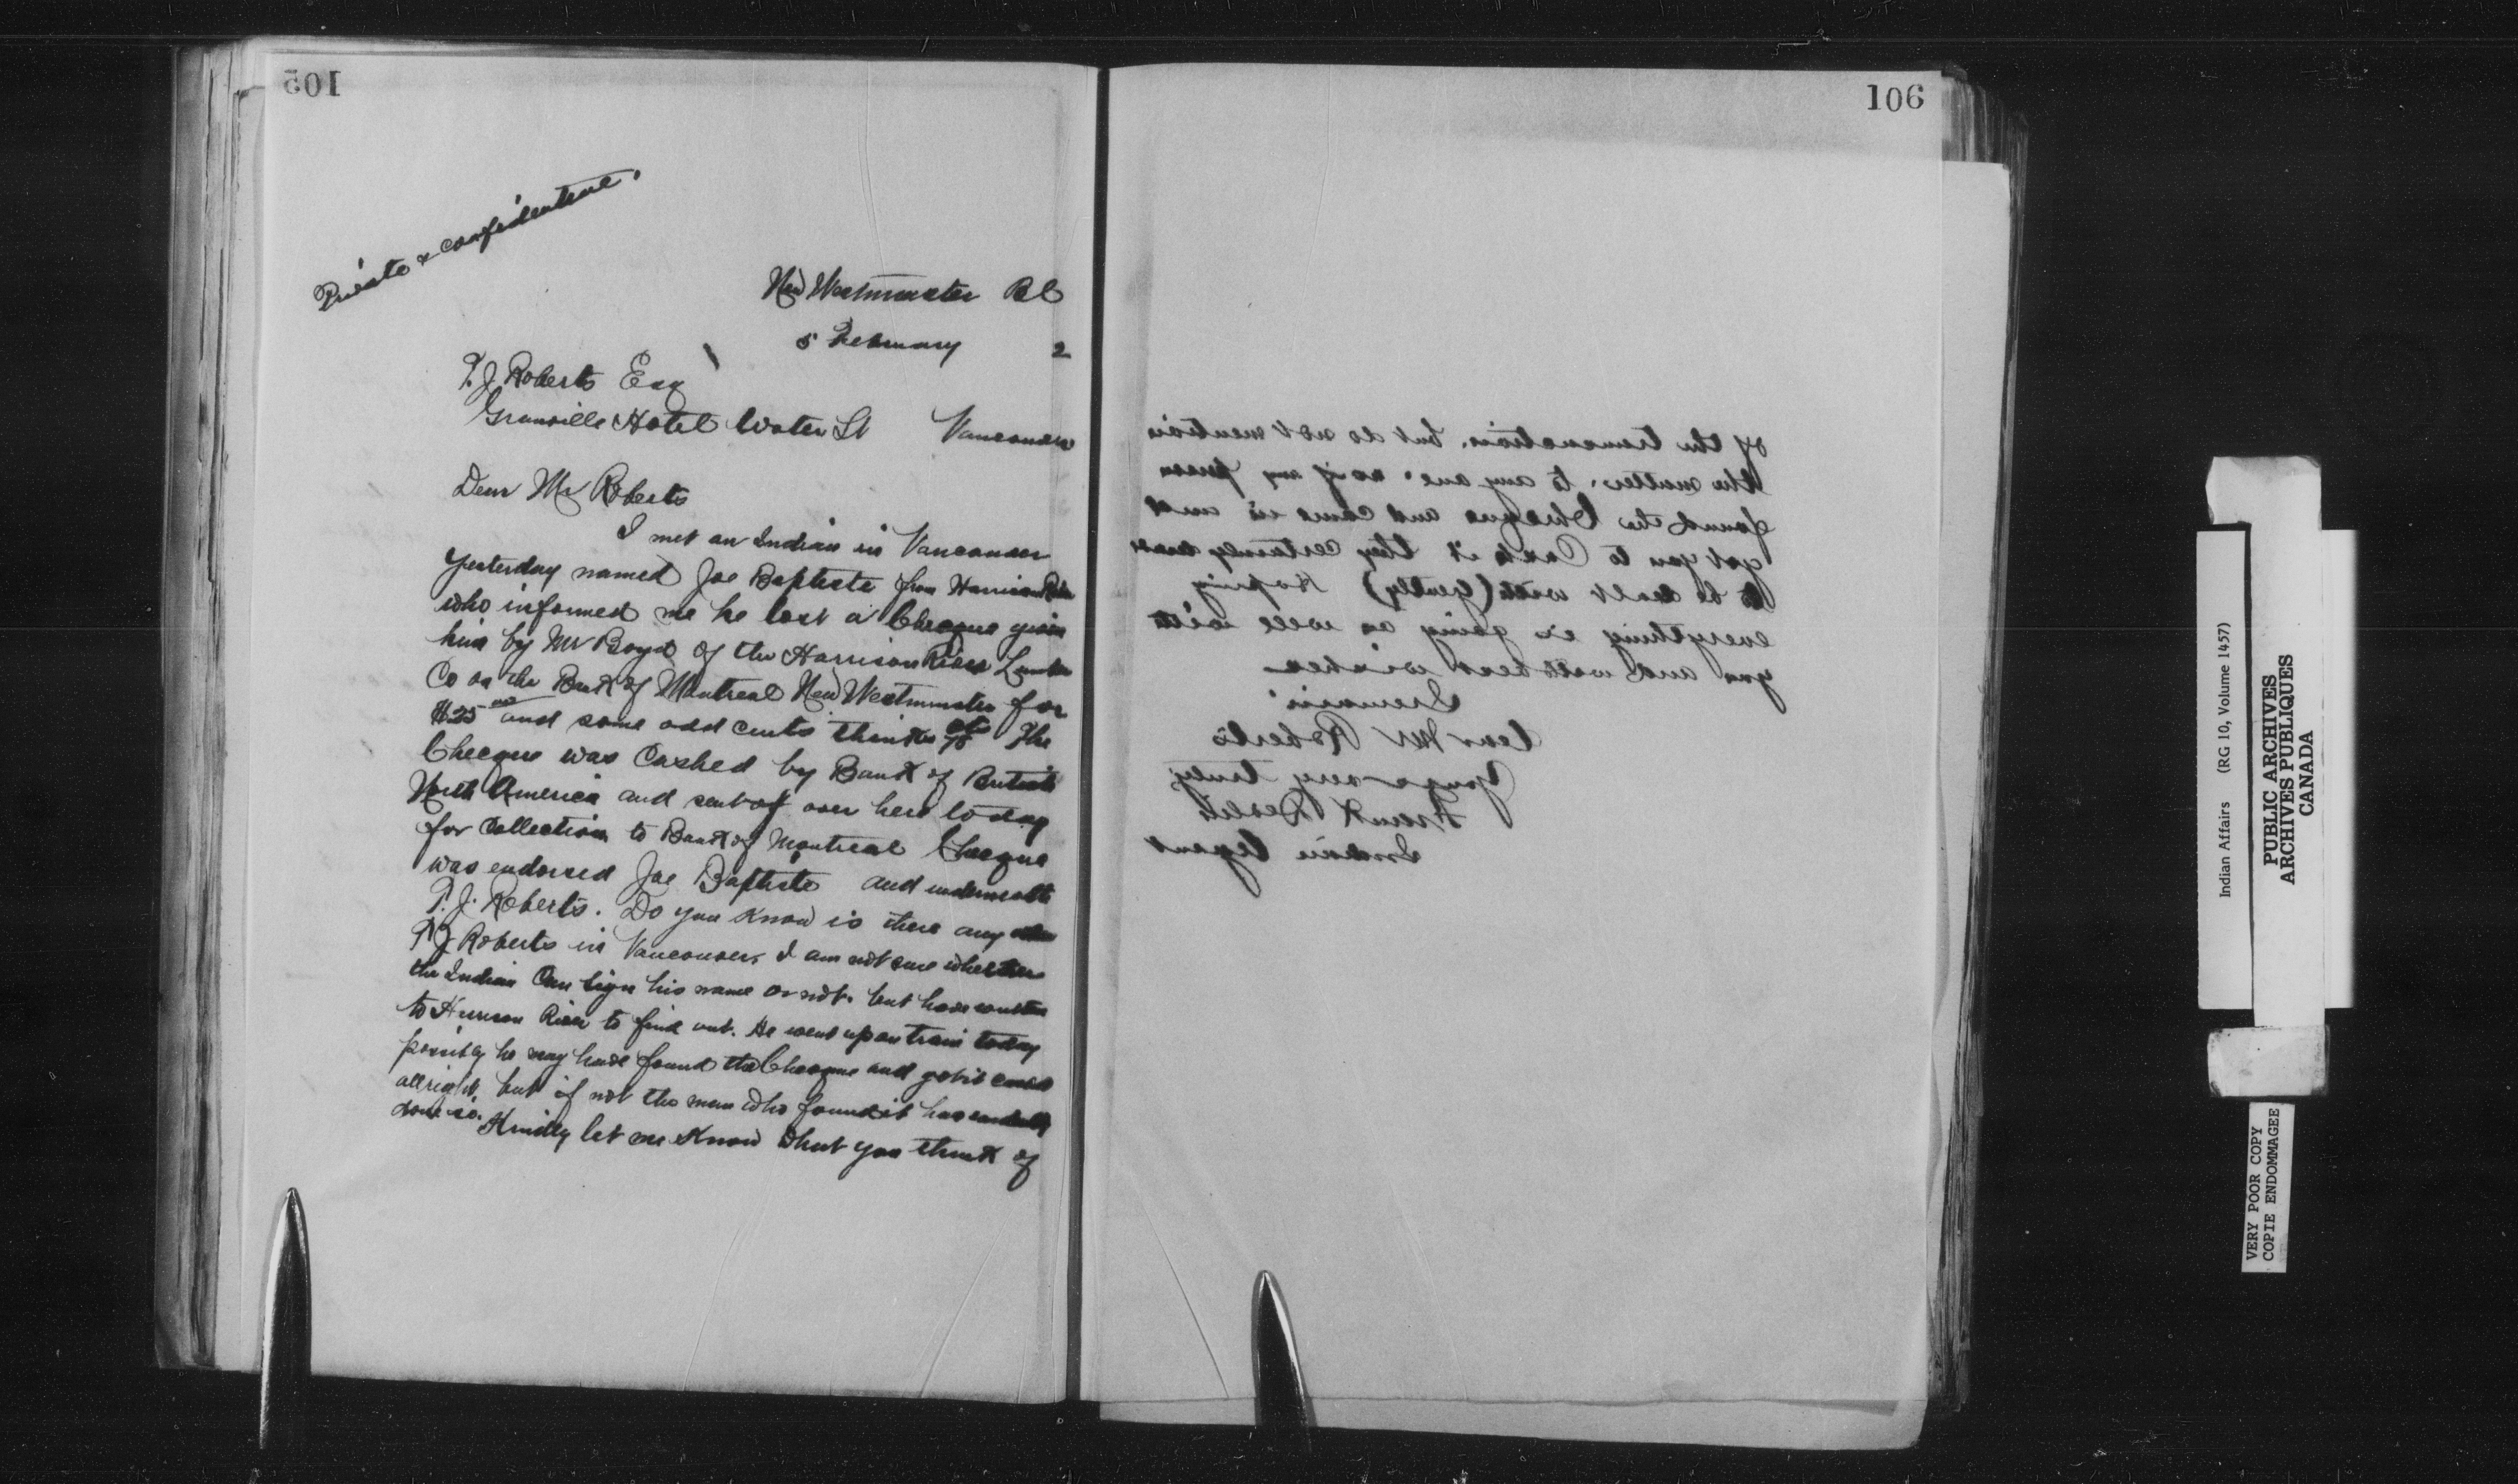 105
Private & confidential.
New Westminster BC
5 February 2
T. J. Roberts Esq
Granville Hotel Water St Vancouver
Dear Mr Roberts
I met an Indian in Vancouver
yesterday named Joe Baptiste from Harrison River
who informed me he lost a Cheque given
him by Mr Boyd of the Harrison River Lumber
Co on the Bank of Montreal New Westminster for
$25 and some odd cents thinks 75 cts The
Cheque was Cashed by Bank of British
North America and sent over here today
for Collection to Bank of Montreal Cheque
was endorsed Joe Baptiste and underneath
T. J. Roberts. Do you know is there any other
T J Roberts in Vancouver. I am not sure whether
the Indian Can sign his name or not. but have written
to Harrison River to find out. He went up on train today
possibly he may have found the Cheque and got it cashed
allright, but if not the man who found it has
done so. Kindly let me Know what you think of
106
of the transaction. but do not mention
the matter. to any one. as if any person
found the Cheque and came in and
got you to Cash it they certainly
to be dealt with (gently) Hoping
everything is going on well with
you and with best wishes
I remain
Dear Mr Roberts
Yours very truly
Frank Devlin
Indian Agent
Indian Affairs (RG 10, Volume 1457)
PUBLIC ARCHIVES
ARCHIVES PUBLIQUES
CANADA
VERY POOR COPY
COPIE ENDOMMAGEE